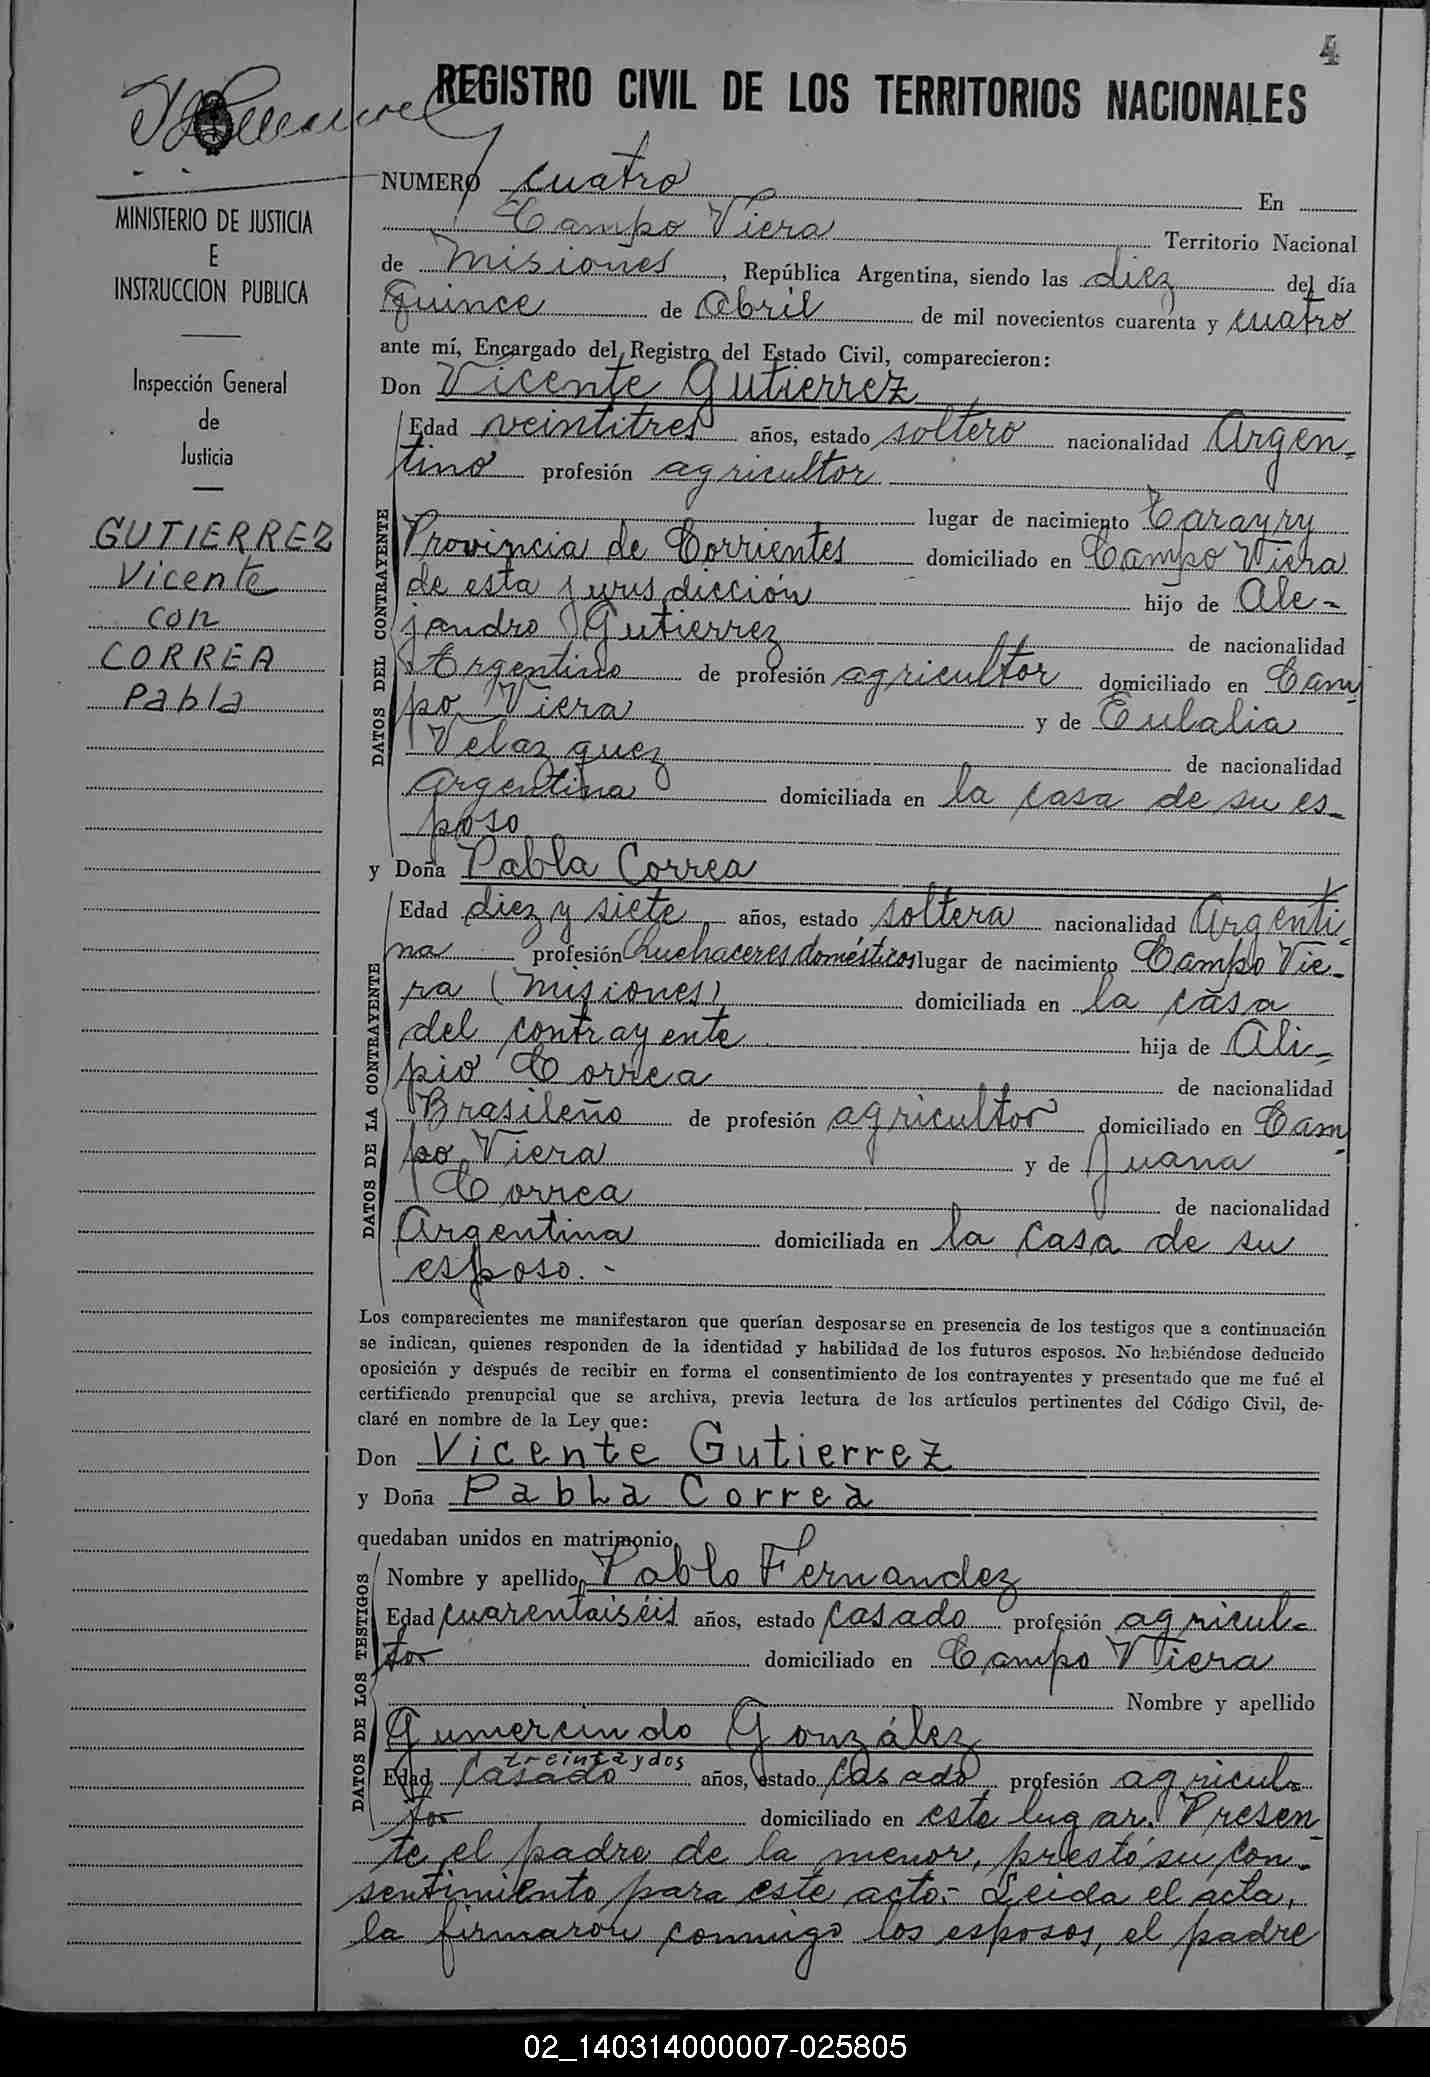 4
REGISTRO CIVIL DE LOS TERRITORIOS NACIONALES
MINISTERIO DE JUSTICIA
E
INSTRUCCION PUBLICA
Inspección General
de
Justicia
GUTIERREZ
Vicente
con
CORREA
Pabla
NUMERO cuatro En
Campo Viera Territorio Nacional
de Misiones, República Argentina, siendo las diez del día
quince de Abril de mil novecientos cuarenta y cuatro
ante mí, Encargado del Registro del Estado Civil, comparecieron:
Don Vicente Gutierrez
DATOS DEL CONTRAYENTE
Edad veintitres años, estado soltero nacionalidad Argen-
tino profesión agricultor
lugar de nacimiento Carayry
Provincia de Corrientes domiciliado en Campo Viera
de esta jurisdicción hijo de Ale-
jandro Gutierrez de nacionalidad
Argentino de profesión agricultor domiciliado en Cam-
po Viera y de Eulalia
Velazquez de nacionalidad
argentina domiciliada en la casa de su es-
poso
y Doña Pabla Correa
DATOS DE LA CONTRAYENTE
Edad diez y siete años, estado soltera nacionalidad Argenti-
na profesión Quehaceres domésticos lugar de nacimiento Campo Vie-
ra (Misiones) domiciliada en la casa
del contrayente hija de Ali-
pio Correa de nacionalidad
Brasileño de profesión agricultor domiciliado en Cam-
po Viera y de Juana
Correa de nacionalidad
Argentina domiciliada en la casa de su
esposo.-
Los comparecientes me manifestaron que querían desposarse en presencia de los testigos que a continuación
se indican, quienes responden de la identidad y habilidad de los futuros esposos. No habiéndose deducido
oposición y después de recibir en forma el consentimiento de los contrayentes y presentado que me fué el
certificado prenupcial que se archiva, previa lectura de los artículos pertinentes del Código Civil, de-
claré en nombre de la Ley que:
Don Vicente Gutierrez
y Doña Pabla Correa
quedaban unidos en matrimonio
DATOS DE LOS TESTIGOS
Nombre y apellido Pablo Fernandez
Edad cuarentaiséis años, estado casado profesión agricul-
tor domiciliado en Campo Viera
Nombre y apellido
Gumercindo González
treinta y dos
Edad casado años, estado casado profesión agricul-
tor domiciliado en este lugar. Presen-
te el padre de la menor, prestó su con-
sentimiento para este acto.- Leida el acta,
la firmaron conmigo los esposos, el padre
02_140314000007-025805